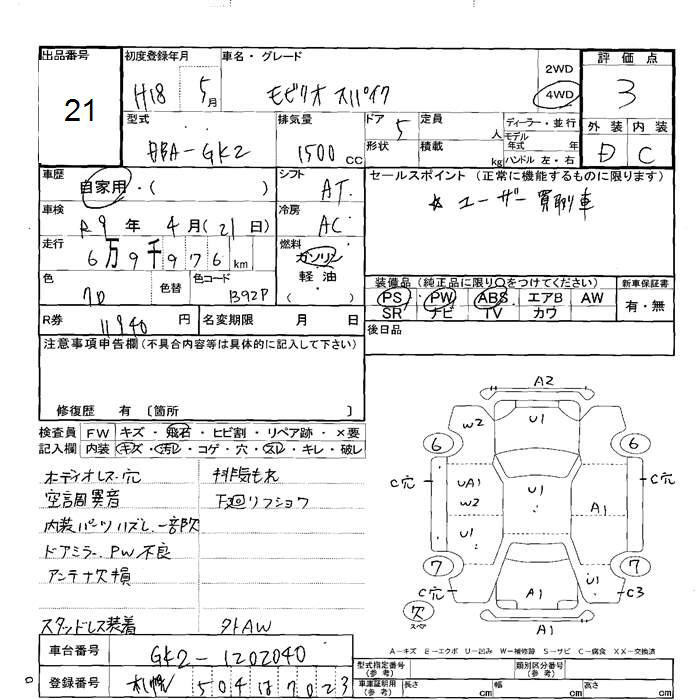 出品番号 初度登録年月 車名・グレード 評価点
21
H18 5月 モビリオ スパイク 2WD 4WD 3
型式 排気量 ドア 5 定員 人 ディーラー・並行 外装 内装
DBA-GK2 1500 CC 形状 積載 kg モデル年式 年 ハンドル 左・右 D C
車歴 自家用・( ) シフト AT セールスポイント (正常に機能するものに限ります)
車検 R9年 4月(21日) 冷房 AC ☆ ユーザー買取車
走行 6万9千976km 燃料 ガソリン 軽油 ( )
色 色替 色コード B92P
装備品 (純正品に限り○をつけてください) 新車保証書
PS・PW・ABS・エアB AW 有・無
SR ナビ TV カワ
R券 11940 円 名変期限 月 日 後日品
注意事項申告欄(不具合内容等は具体的に記入して下さい)
修復歴 有 〔箇所 〕
検査員 FW キズ・飛石・ヒビ割・リペア跡・×要
記入欄 内装 キズ・汚レ・コゲ・穴・スレ・キレ・破レ
ホディオレス穴 排気もれ
空調異音 下廻リフショク
内装パーツハズレ、一部欠
ドアミラー、PW不良
アンテナ欠損
スタッドレス装着 外AW
A2
W2 U1
6 6
C穴 UA1 U1 C穴
W2 A1
U1
7 7
C穴 A1 U1 C3
欠 スペア A1
A-キズ E-エクボ U-凹み W-補修跡 S-サビ C-腐食 XX-交換済
車台番号 GK2-1202040
登録番号 札幌 504 は 7023
型式指定番号(参考) 類別区分番号(参考)
車庫証明用(参考) 長さ cm 幅 cm 高さ cm